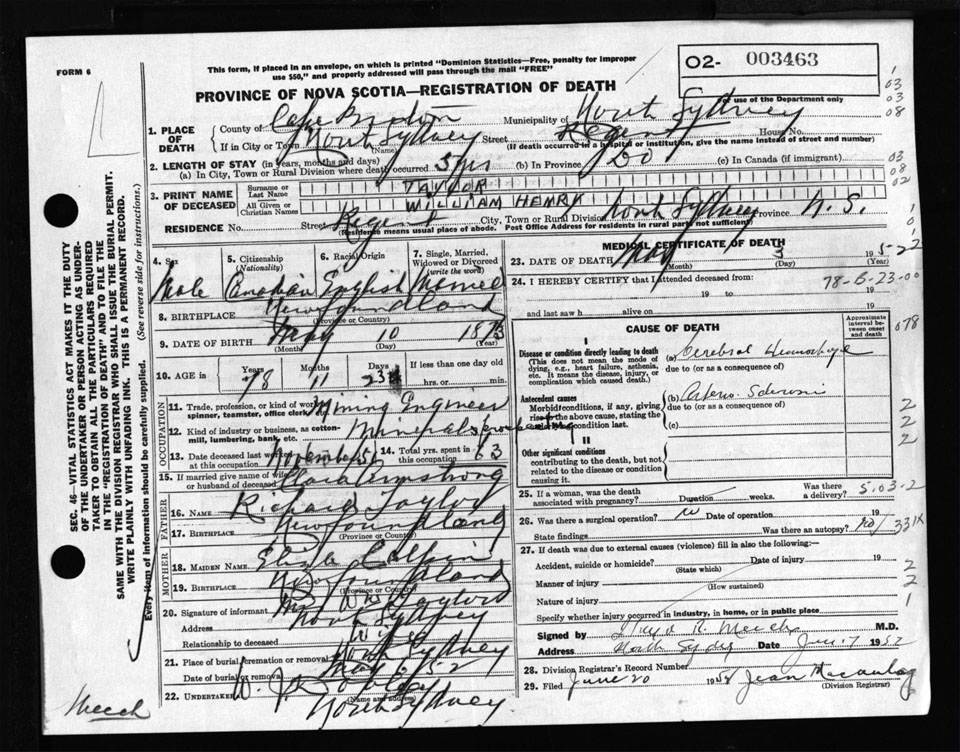 FORM 6
This form, if placed in an envelope, on which is printed "Dominion Statistics—Free, penalty for improper
use $50," and properly addressed will pass through the mail "FREE"
02- 003463
For use of the Department only
PROVINCE OF NOVA SCOTIA—REGISTRATION OF DEATH
03
03
08
1. PLACE OF DEATH
County of Cape Breton Municipality of North Sydney
If in City or Town North Sydney Street Regent House No.
(Name) (If death occurred in a hospital or institution, give the name instead of street and number)
2. LENGTH OF STAY (in years, months and days)
(a) In City, Town or Rural Division where death occurred 5 yrs (b) In Province Do (c) In Canada (if immigrant)
03
08
02
3. PRINT NAME OF DECEASED
Surname or Last Name TAYLOR
All Given or Christian Names WILLIAM HENRY
RESIDENCE No. Street Regent City, Town or Rural Division North Sydney Province N. S.
(Residence means usual place of abode. Post Office Address for residents in rural parts not sufficient)
4. Sex Male
5. Citizenship (Nationality) Canadian
6. Racial Origin English
7. Single, Married, Widowed or Divorced (write the word) Married
8. BIRTHPLACE Newfoundland
(Province or Country)
9. DATE OF BIRTH May 10 1873
(Month) (Day) (Year)
10. AGE in Years Months Days If less than one day old
78 11 23 hrs. or min.
OCCUPATION
11. Trade, profession or kind of work as spinner, teamster, office clerk, Mining Engineer
12. Kind of industry or business, as cotton-mill, lumbering, bank, etc. Mineral prospecting
13. Date deceased last worked at this occupation November 51
14. Total yrs. spent in this occupation 63
15. If married give name of wife or husband of deceased Clara Armstrong
FATHER
16. NAME Richard Taylor
17. BIRTHPLACE Newfoundland
(Province or Country)
MOTHER
18. MAIDEN NAME Eliza
19. BIRTHPLACE Newfoundland
(Province or Country)
20. Signature of informant Mrs Wm Taylor
Address North Sydney
Relationship to deceased Wife
21. Place of burial, cremation or removal North Sydney
Date of burial or removal May 6/52
22. UNDERTAKER W. J.
(Name and address)
North Sydney
MEDICAL CERTIFICATE OF DEATH
23. DATE OF DEATH May 3 195 2
(Month) (Day)
24. I HEREBY CERTIFY that I attended deceased from:
19 to 19
and last saw h alive on 19
78-6-23-00
078
CAUSE OF DEATH
Approximate interval between onset and death
I
Disease or condition directly leading to death
(This does not mean the mode of dying, e.g., heart failure, asthenia, etc. It means the disease, injury, or complication which caused death.)
(a) Cerebral Hemorrhage
due to (or as a consequence of)
Antecedent causes
Morbid conditions, if any, giving rise to the above cause, stating the underlying condition last.
(b) Arterio Sclerosis
due to (or as a consequence of)
(c)
2
2
2
II
Other significant conditions
contributing to the death, but not related to the disease or condition causing it.
25. If a woman, was the death associated with pregnancy? Duration weeks. Was there a delivery? 5-03-2
26. Was there a surgical operation? no Date of operation 195
State findings Was there an autopsy? no 331X
27. If death was due to external causes (violence) fill in also the following:—
Accident, suicide or homicide? Date of injury 19
(State which)
Manner of injury
(How sustained)
Nature of injury
2
2
1
Specify whether injury occurred in industry, in home, or in public place
Signed by R. Meech M.D.
Address North Sydney Date June 7 1952
28. Division Registrar's Record Number
29. Filed June 20 1952 Jean
(Division Registrar)
Meech
SEC. 46—VITAL STATISTICS ACT MAKES IT THE DUTY
OF THE UNDERTAKER OR PERSON ACTING AS UNDER-
TAKER TO OBTAIN ALL THE PARTICULARS REQUIRED
IN THE "REGISTRATION OF DEATH" AND TO FILE THE
SAME WITH THE DIVISION REGISTRAR WHO SHALL ISSUE THE BURIAL PERMIT.
WRITE PLAINLY WITH UNFADING INK. THIS IS A PERMANENT RECORD.
Every item of information should be carefully supplied. (See reverse side for instructions.)